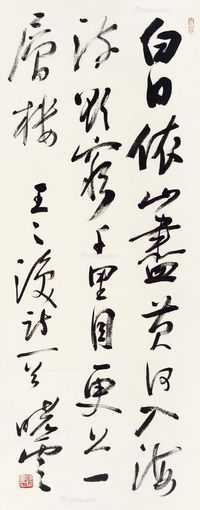 白日依山盡黄河入海
流欲窮千里目更上一
層樓 王之渙詩一首 曉雲